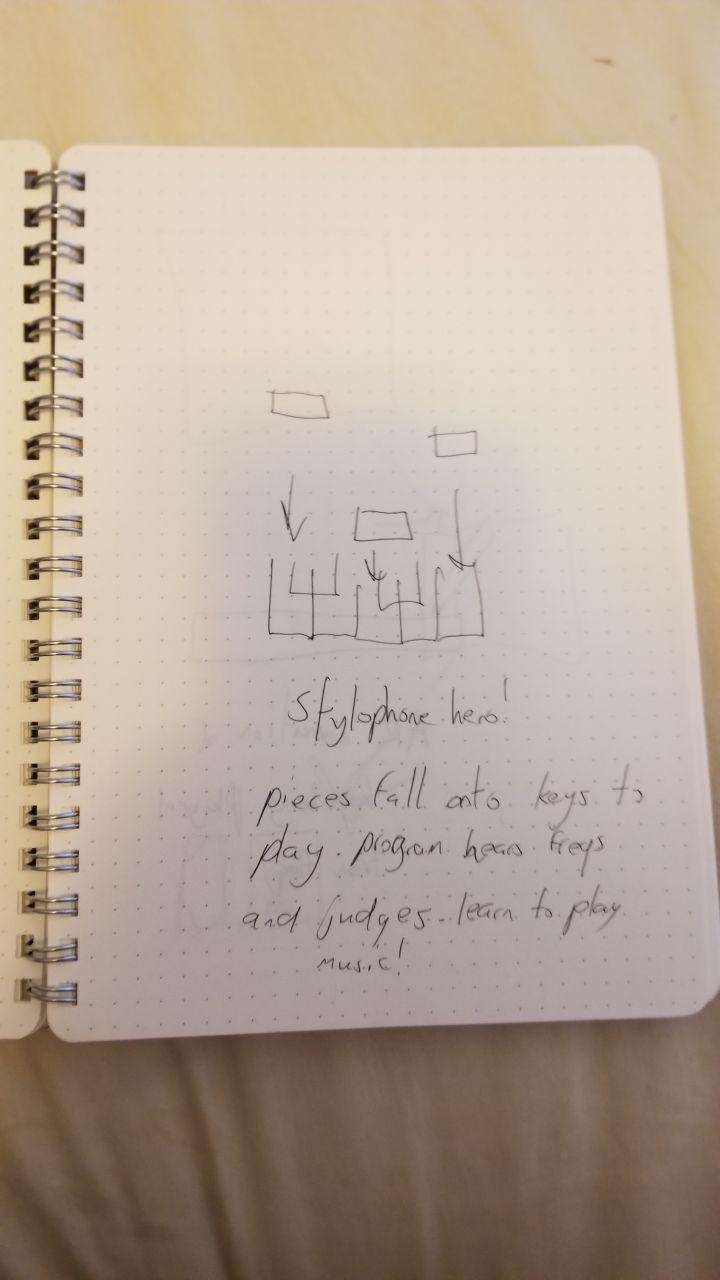 Stylophone hero!
pieces fall onto keys to
play. program hears freqs
and judges. learn to play
music!